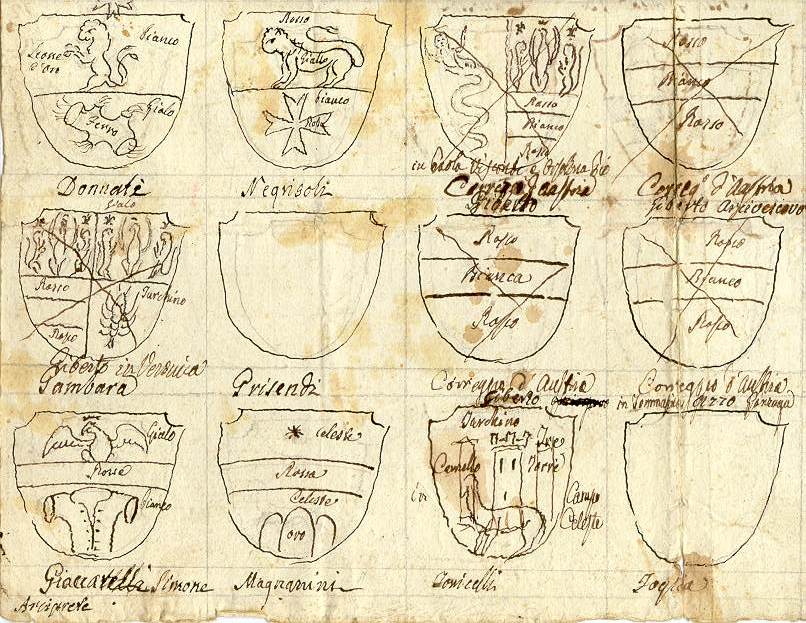 Leone
d'oro
Bianco
Gialo
Ferro
Donnate
Rosso
Giallo
bianco
Negrisoli
Rosso
Bianco
Rosso
in
Visconti e
Correggio d'Austria
Giberto
Rosso
Bianco
Rosso
Correg.º d'Austria
Giberto Arcivescovo
Gialo
Rosso
Rosso
Turchino
Giberto in Veronica
Gambara
Prisendi
Rosso
Bianca
Rosso
Correggio d'Austria
Giberto
Rosso
Bianco
Rosso
Correggio d'Austria
in
Gonzaga
Gialo
Rosse
Bianco
Giaccarelli Simone
Arciprete
celeste
Rossa
Celeste
oro
Magnanini
Turchino
Tre
Torre
Camello
Campo
Celeste
Foglia